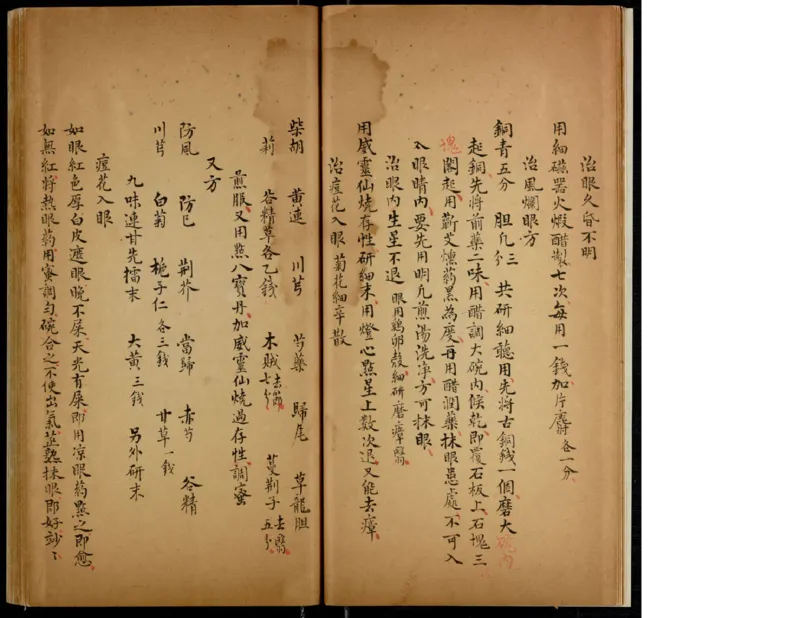 治眼久昏不明
用細磁器火煅醋製七次每用一錢加片麝各一分
治風爛眼方
銅青五分 胆凡三分 共研細聽用先將古銅錢一個磨大碗內
起銅先將前藥二味用醋調大碗內候乾即覆石板上石塊三
塊閣起用蘄艾燻藥黑為度再用醋潤藥抹眼患處不可入
入眼睛內要先用明凡煎湯洗淨方可抹眼
治眼內生星不退 眼用鷄卵殼細研磨瘴翳
用威靈仙燒存性研細末用燈心點星上數次退又能去瘴
治痘花入眼 菊花細辛散
柴胡 黃連 川芎 芍藥 歸尾 草龍胆
荊 谷精草各乙錢 木賊去節七分 蔓荊子去翳五分
煎服又用點八寶丹加威靈仙燒過存性調蜜
又方
防風 防已 荆芥 當歸 赤芍 谷精
川芎 白菊 梔子仁各三錢 甘草一錢
九味連甘先擂末 大黃三錢 另外研末
痘花入眼
如眼紅色厚白皮遮眼晚不屎天光有屎即用凉眼藥點之即愈
如無紅將熱眼藥用蜜調勻碗合之不使出氣蒸熟抹眼即好妙〻